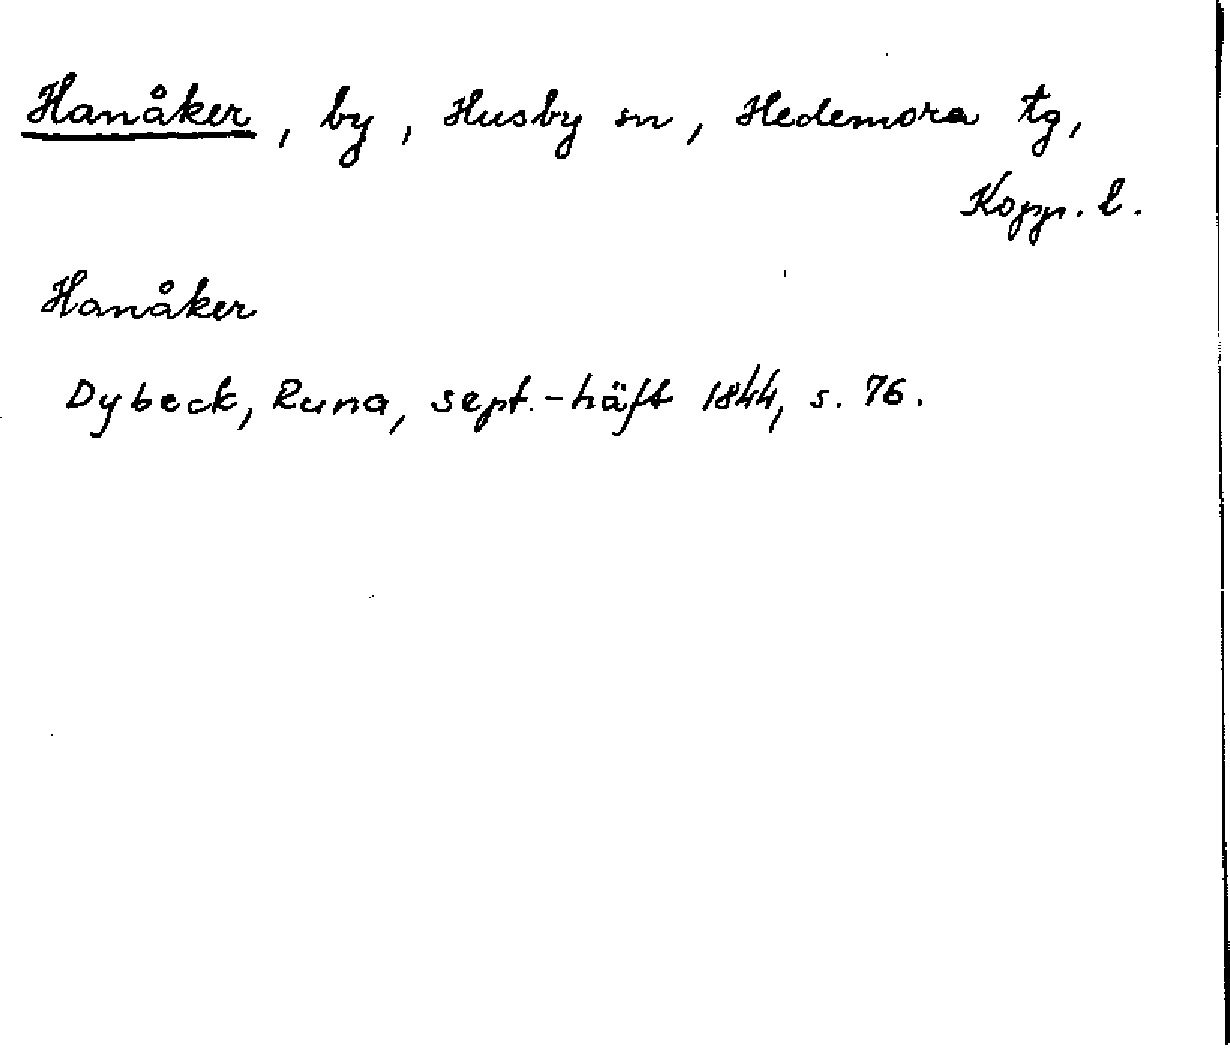 Hanåker, by, Husby sn, Hedemora tg,
Kopp. l.
Hanåker
Dybeck, Runa, sept.-häft 1844, s. 76.